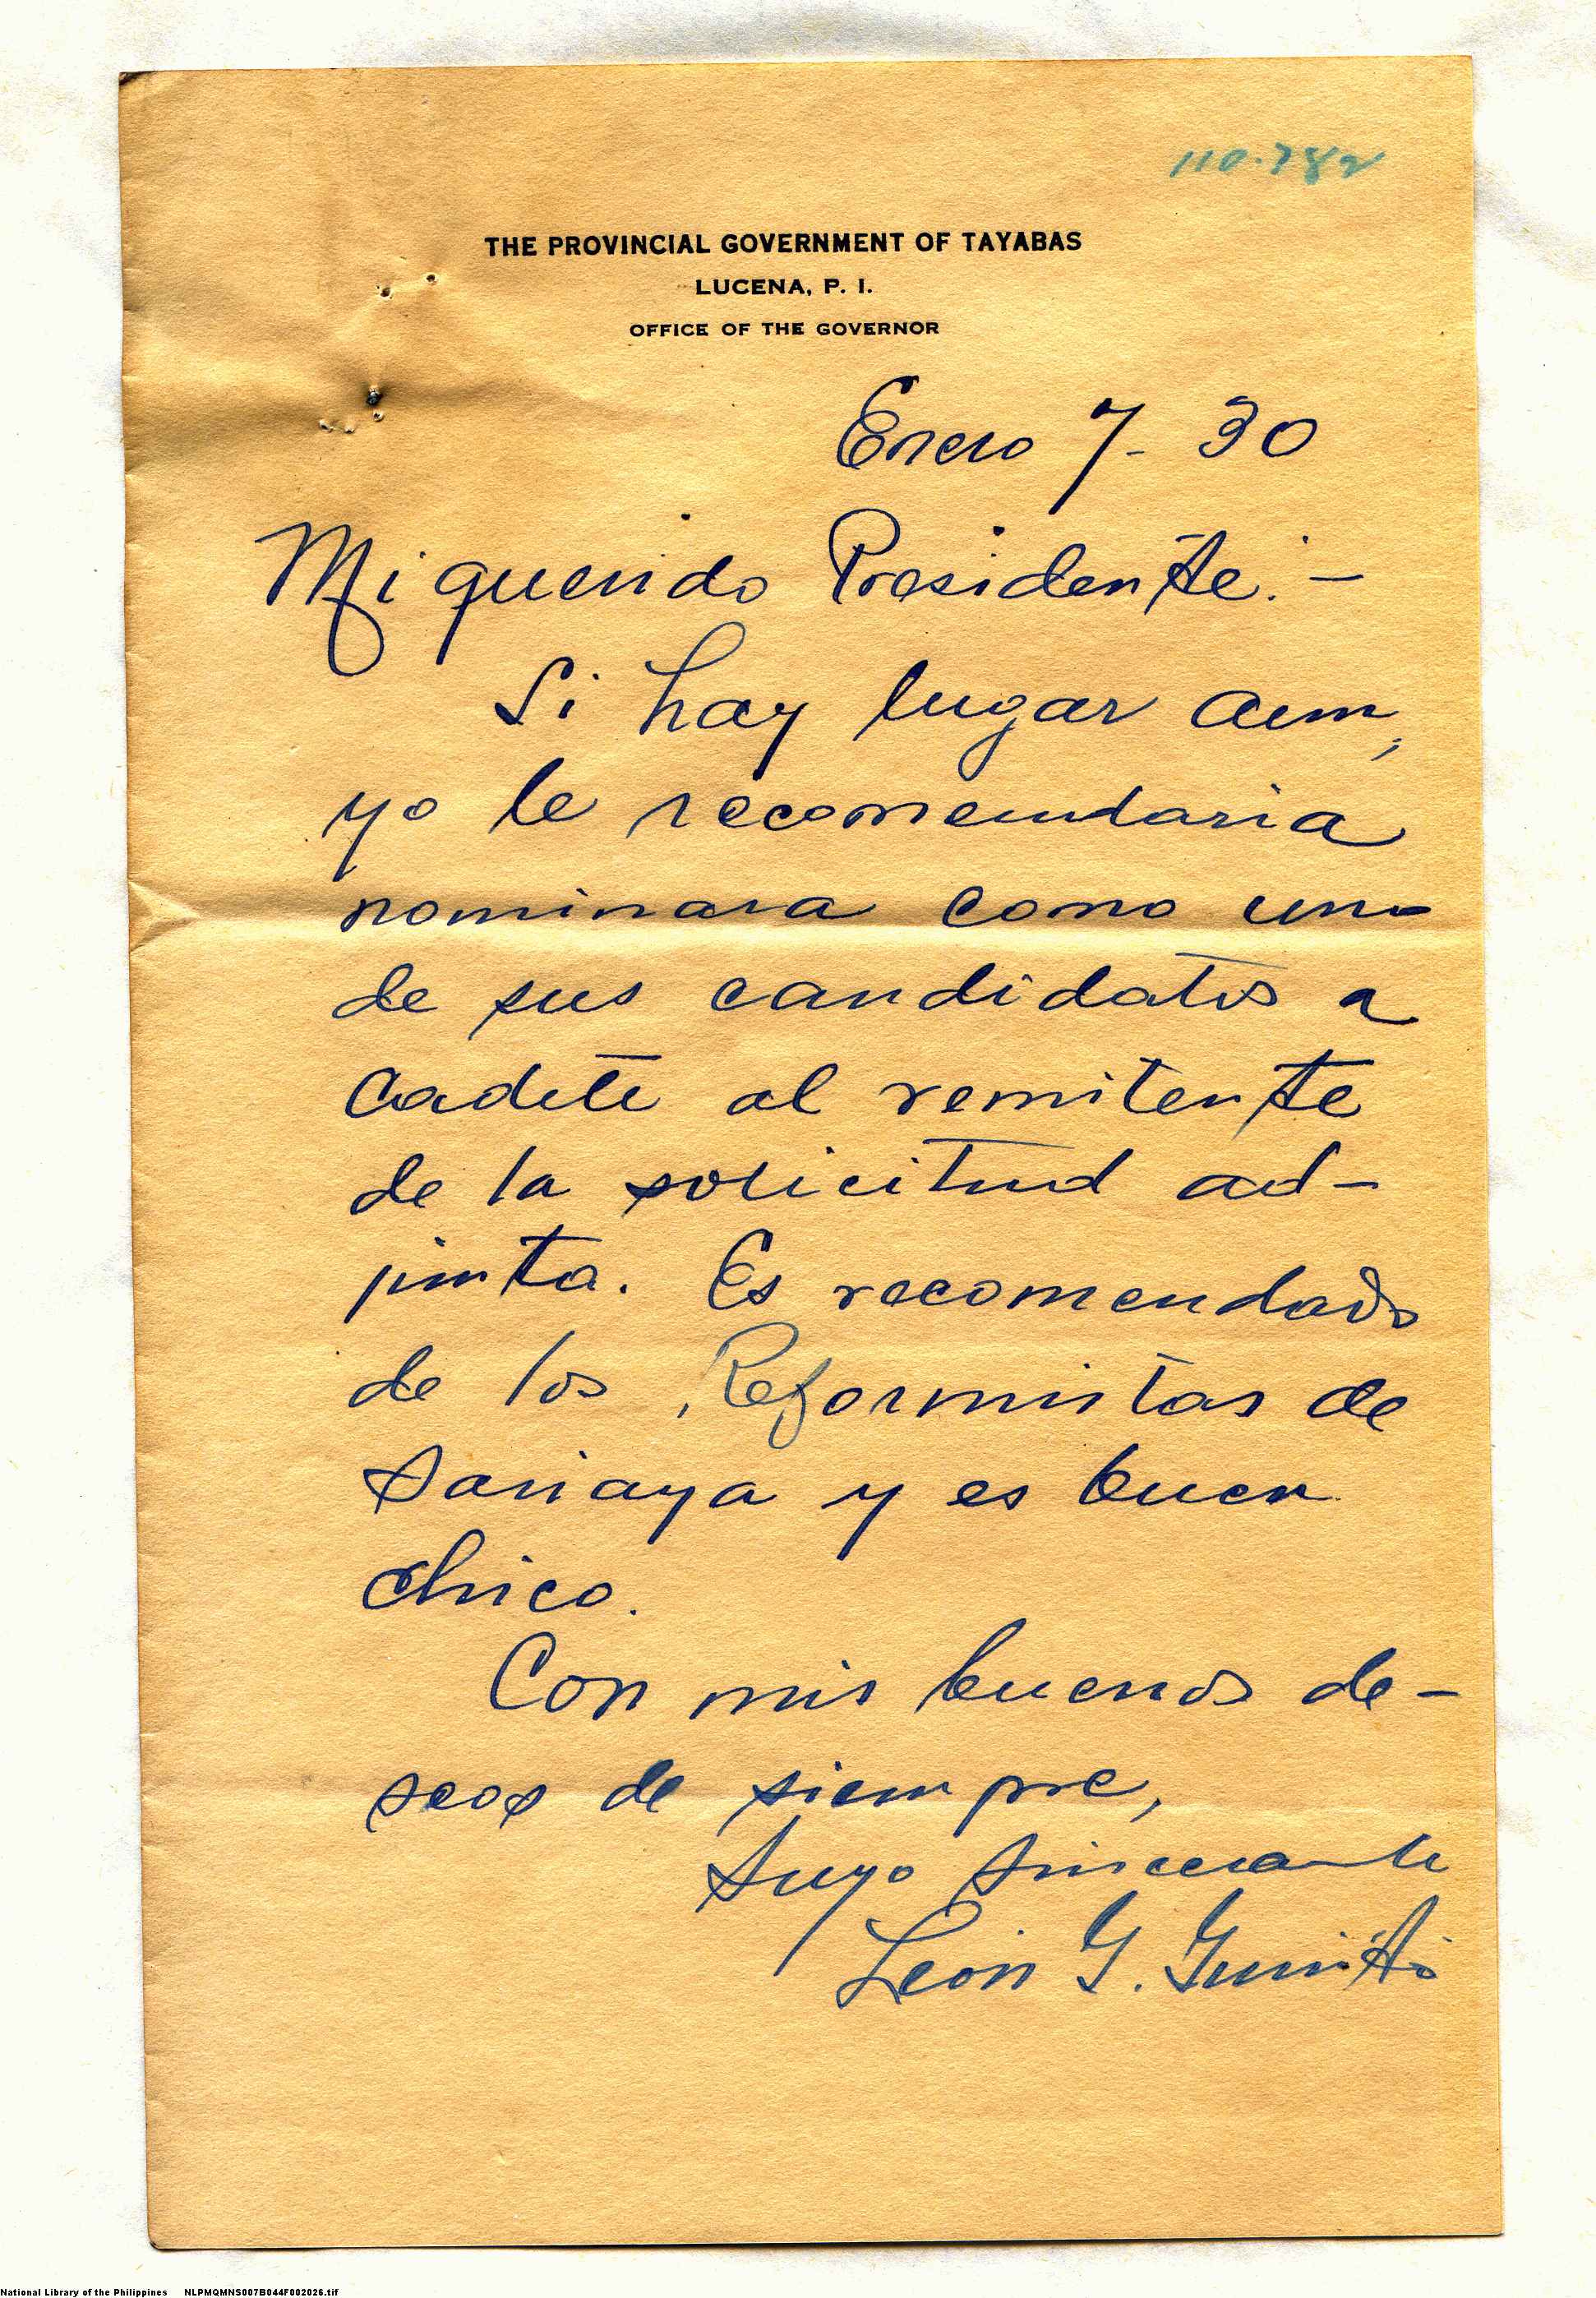 110.782
THE PROVINCIAL GOVERNMENT OF TAYABAS
LUCENA, P. I.
OFFICE OF THE GOVERNOR
Enero 7 - 30
Mi querido Presidente: -
Si hay lugar aun,
yo le recomendaria
nominara como uno
de sus candidatos a
cadete al remitente
de la solicitud ad-
junta. Es recomendado
de los Reformistas de
Sariaya y es buen
chico.
Con mis buenos de-
seos de siempre,
Suyo sinceramente
León G. Guinto
National Library of the Philippines NLPMQMNS007B044F002026.tif